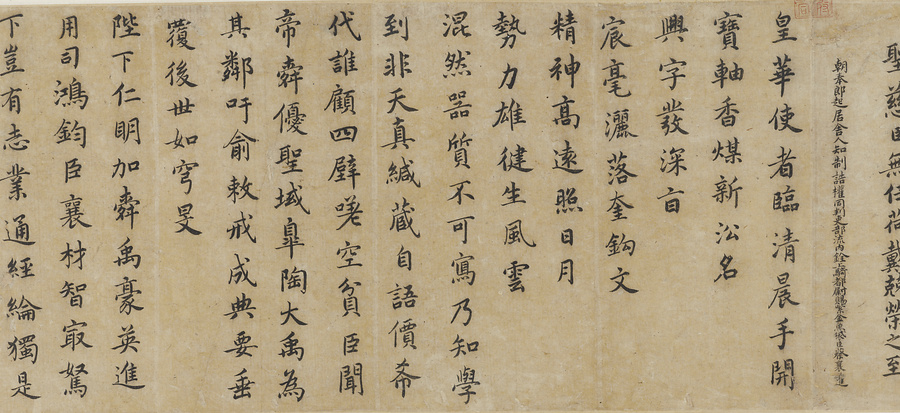 聖慈臣無任荷戴兢榮之至
朝奉郎起居舍人知制誥權同判吏部流內銓上騎都尉賜紫金魚袋臣蔡襄上進
皇華使者臨清晨手開
寶軸香煤新沿名
與字發深旨
宸毫灑落奎鈎文
精神高遠照日月
勢力雄健生風雲
混然器質不可寫乃知學
到非天真緘藏自語價希
代誰顧四壁嗟空貧臣聞
帝舜優聖域皐陶大禹為
其鄰吁俞敕戒成典要垂
覆後世如穹旻
陛下仁明加舜禹豪英進
用司鴻鈞臣襄材智㝡駑
下豈有志業通經綸獨是